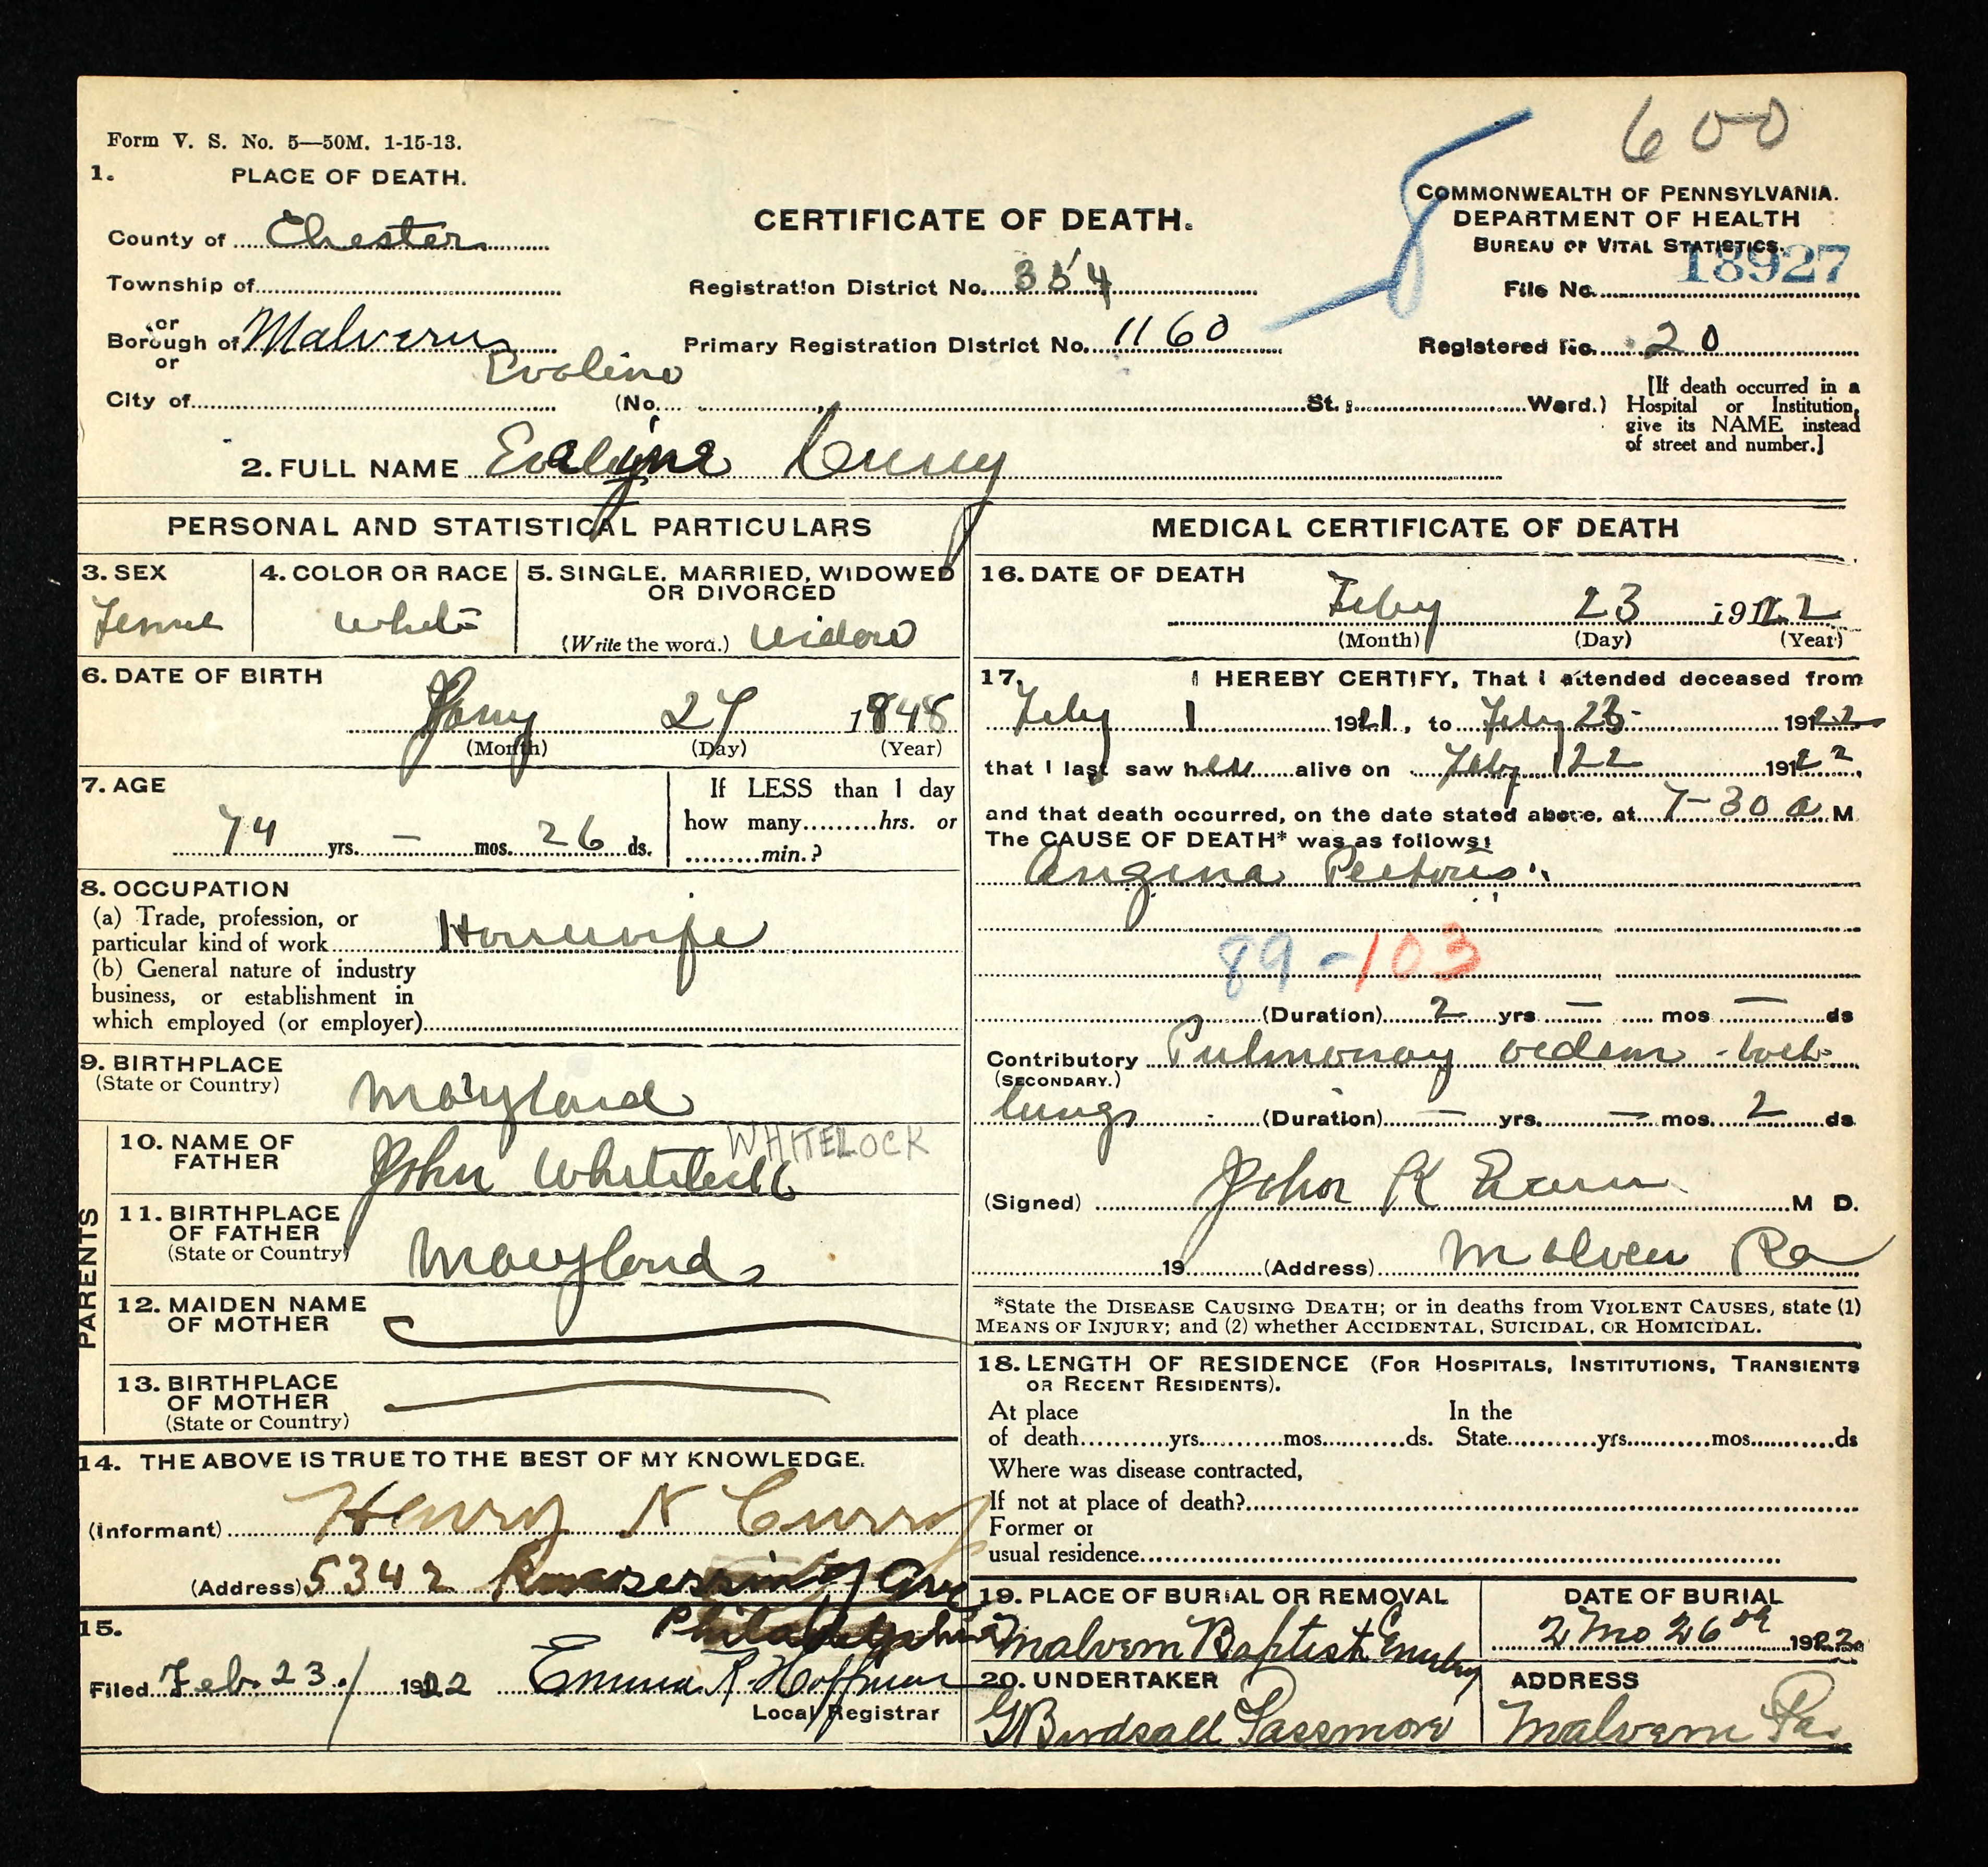 600
Form V. S. No. 5—50M. 1-15-13.
1. PLACE OF DEATH.
County of Chester
Township of
or
Borough of Malvern
or
City of
CERTIFICATE OF DEATH.
Registration District No. 354
Primary Registration District No. 1160
COMMONWEALTH OF PENNSYLVANIA.
DEPARTMENT OF HEALTH
BUREAU OF VITAL STATISTICS.
File No. 18927
Registered No. 20
Evoline
(No. St.; Ward.)
[If death occurred in a
Hospital or Institution,
give its NAME instead
of street and number.]
2. FULL NAME Evaline Curry
PERSONAL AND STATISTICAL PARTICULARS
3. SEX
Female
4. COLOR OR RACE
White
5. SINGLE, MARRIED, WIDOWED
OR DIVORCED
(Write the word.) Widow
6. DATE OF BIRTH
Jany 27 1848
(Month) (Day) (Year)
7. AGE
74 yrs. — mos. 26 ds.
If LESS than 1 day
how many hrs. or
min.?
8. OCCUPATION
(a) Trade, profession, or
particular kind of work Housewife
(b) General nature of industry
business, or establishment in
which employed (or employer)
9. BIRTHPLACE
(State or Country)
Maryland
PARENTS
10. NAME OF
FATHER
John Whitelock
WHITELOCK
11. BIRTHPLACE
OF FATHER
(State or Country)
Maryland
12. MAIDEN NAME
OF MOTHER
13. BIRTHPLACE
OF MOTHER
(State or Country)
14. THE ABOVE IS TRUE TO THE BEST OF MY KNOWLEDGE.
(Informant) Henry N Curry
(Address) 5342 Kingsessing Ave
Philadelphia
15.
Filed Feb. 23. 1922 Emma R. Hoffman
Local Registrar
MEDICAL CERTIFICATE OF DEATH
16. DATE OF DEATH
Feby 23 1922
(Month) (Day) (Year)
17. I HEREBY CERTIFY, That I attended deceased from
Feby 1 1921, to Feby 23 1922
that I last saw her alive on Feby 22 1922,
and that death occurred, on the date stated above, at 7-30 a M.
The CAUSE OF DEATH* was as follows:
Angina Pectoris
89-103
(Duration) 2 yrs — mos — ds
Contributory Pulmonary oedem - both
(SECONDARY.)
lungs (Duration) — yrs. — mos. 2 ds.
(Signed) John K M D.
19 (Address) Malvern Pa
*State the DISEASE CAUSING DEATH; or in deaths from VIOLENT CAUSES, state (1)
MEANS OF INJURY; and (2) whether ACCIDENTAL, SUICIDAL, OR HOMICIDAL.
18. LENGTH OF RESIDENCE (FOR HOSPITALS, INSTITUTIONS, TRANSIENTS
OR RECENT RESIDENTS).
At place In the
of death yrs. mos. ds. State yrs. mos. ds
Where was disease contracted,
If not at place of death?
Former or
usual residence
19. PLACE OF BURIAL OR REMOVAL
Malvern Baptist Cemetery
DATE OF BURIAL
2 Mo 26th 1922
20. UNDERTAKER
G Birdsall Passmore
ADDRESS
Malvern Pa.